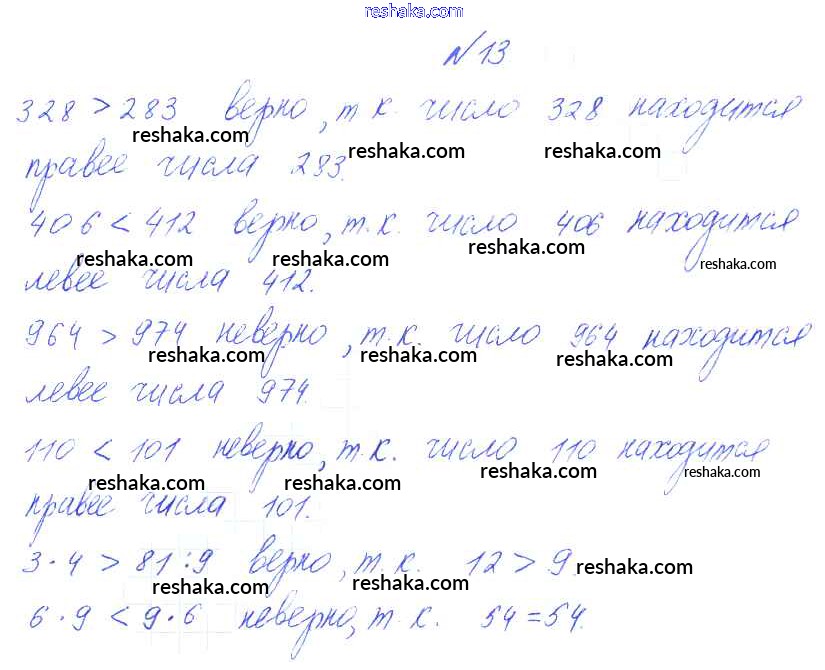 reshaka.com
№13
328 > 283 верно, т.к. число 328 находится
reshaka.com reshaka.com reshaka.com
правее числа 283.
406 < 412 верно, т.к. число 406 находится
reshaka.com reshaka.com reshaka.com reshaka.com
левее числа 412.
964 > 974 неверно, т.к. число 964 находится
reshaka.com reshaka.com reshaka.com
левее числа 974.
110 < 101 неверно, т.к. число 110 находится
reshaka.com reshaka.com reshaka.com reshaka.com
правее числа 101.
3·4 > 81:9 верно, т.к. 12 > 9.
reshaka.com reshaka.com reshaka.com
6·9 < 9·6 неверно, т.к. 54 = 54.
reshaka.com reshaka.com